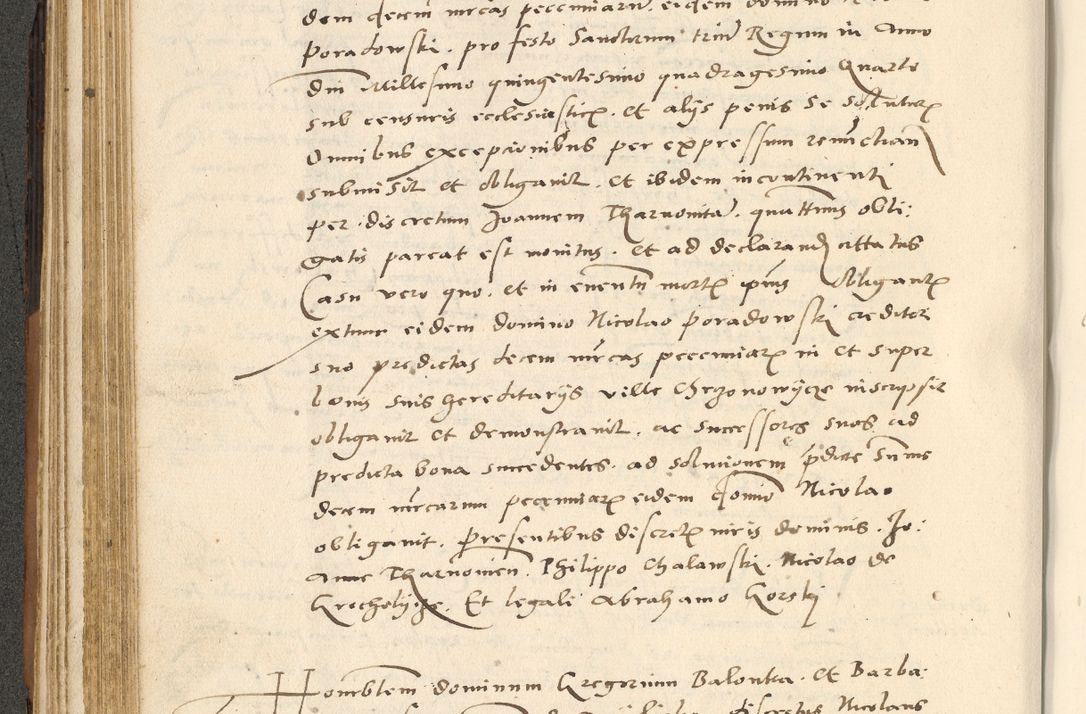 dem decem mrcas pecuniarū. eidem domino
Poradowski. pro festo Sanctorum triū Regum in Anno
dni Millesimo quingentesimo quadragesimo Quarto
sub censuris ecclesiasticꝫ. et alijs penis se soluturꝫ
Omnibus excepcionibus per expressum renūctian
submisit et obligavit. et ibidem incontinenti
per discretum Joannem Tharnovitā. quattenus obli:
gatis pareat est monitus. et ad declarandꝫ cittatus
Casu vero quo. et in eventū mortꝫ ipius Obligantꝫ
extunc eidem domino Nicolao Poradowski creditori
suo predictas decem mrcas pecuniarꝫ in et super
bonis suis hereditarijs ville Chrzonowycze inscripsit
obligavit et demonstravit. ac successores suos ad
predicta bona succedentes. ad solutionem p̄dicte Sūme
decem mrcarum pecuniarꝫ eidem domio Nicolao
obligavit. presentibus discretꝫ viris dominis. Jo:
anne Tharnovien. Philippo Chalawski. Nicolao de
Grocholycze. Et legali Abrahamo Gorski
Honorblem dominum Gregorium Balontka. et Barba:
discretus Nicolaus